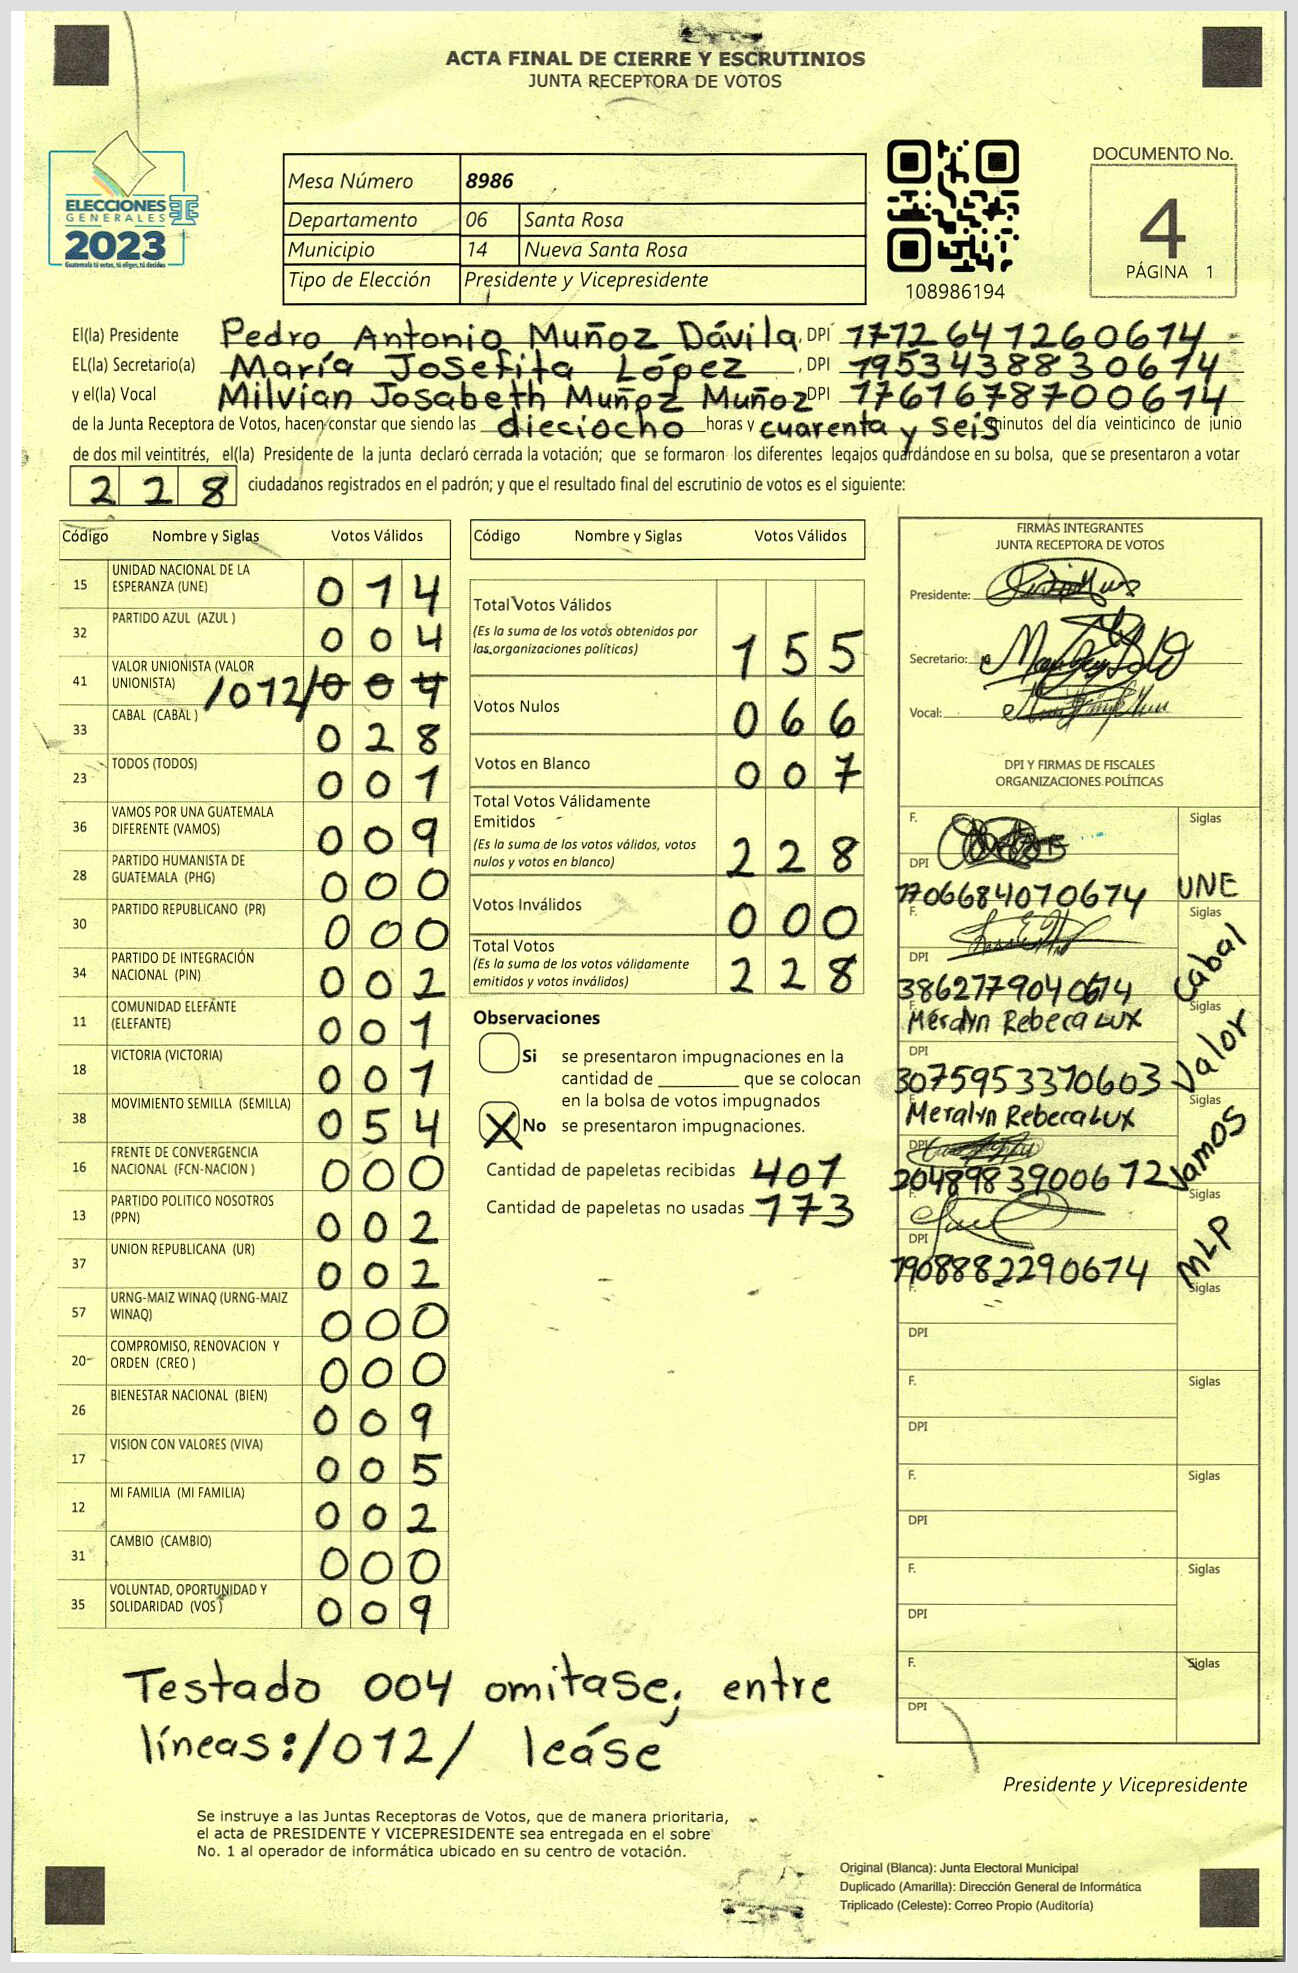 ACTA FINAL DE CIERRE Y ESCRUTINIOS
JUNTA RECEPTORA DE VOTOS
ELECCIONES
GENERALES
2023
Guatemala tú votas, tú eliges, tú decides
Mesa Número 8986
Departamento 06 Santa Rosa
Municipio 14 Nueva Santa Rosa
Tipo de Elección Presidente y Vicepresidente
108986194
DOCUMENTO No.
4
PÁGINA 1
El(la) Presidente Pedro Antonio Muñoz Dávila, DPI 1772647260674
EL(la) Secretario(a) María Josefita López, DPI 1953438830674
y el(la) Vocal Milvian Josabeth Muñoz Muñoz DPI 1761678700614
de la Junta Receptora de Votos, hacen constar que siendo las dieciocho horas y cuarenta y seis minutos del día veinticinco de junio
de dos mil veintitrés, el(la) Presidente de la junta declaró cerrada la votación; que se formaron los diferentes legajos guardándose en su bolsa, que se presentaron a votar
228 ciudadanos registrados en el padrón; y que el resultado final del escrutinio de votos es el siguiente:
Código Nombre y Siglas Votos Válidos
15 UNIDAD NACIONAL DE LA ESPERANZA (UNE) 014
32 PARTIDO AZUL (AZUL ) 004
41 VALOR UNIONISTA (VALOR UNIONISTA) /012/ 004
33 CABAL (CABAL ) 028
23 TODOS (TODOS) 001
36 VAMOS POR UNA GUATEMALA DIFERENTE (VAMOS) 009
28 PARTIDO HUMANISTA DE GUATEMALA (PHG) 000
30 PARTIDO REPUBLICANO (PR) 000
34 PARTIDO DE INTEGRACIÓN NACIONAL (PIN) 002
11 COMUNIDAD ELEFANTE (ELEFANTE) 001
18 VICTORIA (VICTORIA) 001
38 MOVIMIENTO SEMILLA (SEMILLA) 054
16 FRENTE DE CONVERGENCIA NACIONAL (FCN-NACION ) 000
13 PARTIDO POLITICO NOSOTROS (PPN) 002
37 UNION REPUBLICANA (UR) 002
57 URNG-MAIZ WINAQ (URNG-MAIZ WINAQ) 000
20 COMPROMISO, RENOVACION Y ORDEN (CREO ) 000
26 BIENESTAR NACIONAL (BIEN) 009
17 VISION CON VALORES (VIVA) 005
12 MI FAMILIA (MI FAMILIA) 002
31 CAMBIO (CAMBIO) 000
35 VOLUNTAD, OPORTUNIDAD Y SOLIDARIDAD (VOS ) 009
Código Nombre y Siglas Votos Válidos
Total Votos Válidos
(Es la suma de los votos obtenidos por
las organizaciones políticas) 155
Votos Nulos 066
Votos en Blanco 007
Total Votos Válidamente
Emitidos
(Es la suma de los votos válidos, votos
nulos y votos en blanco) 228
Votos Inválidos 000
Total Votos
(Es la suma de los votos válidamente
emitidos y votos inválidos) 228
Observaciones
Si se presentaron impugnaciones en la
cantidad de ________ que se colocan
en la bolsa de votos impugnados
X No se presentaron impugnaciones.
Cantidad de papeletas recibidas 401
Cantidad de papeletas no usadas 173
FIRMAS INTEGRANTES
JUNTA RECEPTORA DE VOTOS
Presidente:
Secretario:
Vocal:
DPI Y FIRMAS DE FISCALES
ORGANIZACIONES POLÍTICAS
F. Siglas
DPI 1706684070674 UNE
F. Siglas
DPI 3862779040614 Cabal
F. Meralyn Rebeca Lux Siglas
DPI 3075953370603 Valor
Meralyn Rebeca Lux Siglas
DPI 2048983900612 Vamos
F. Siglas
DPI 1908882290674 MLP
F. Siglas
DPI
F. Siglas
DPI
F. Siglas
DPI
F. Siglas
DPI
F. Siglas
DPI
Testado 004 omitase, entre
líneas:/012/ leáse
Presidente y Vicepresidente
Se instruye a las Juntas Receptoras de Votos, que de manera prioritaria,
el acta de PRESIDENTE Y VICEPRESIDENTE sea entregada en el sobre
No. 1 al operador de informática ubicado en su centro de votación.
Original (Blanca): Junta Electoral Municipal
Duplicado (Amarilla): Dirección General de Informática
Triplicado (Celeste): Correo Propio (Auditoría)